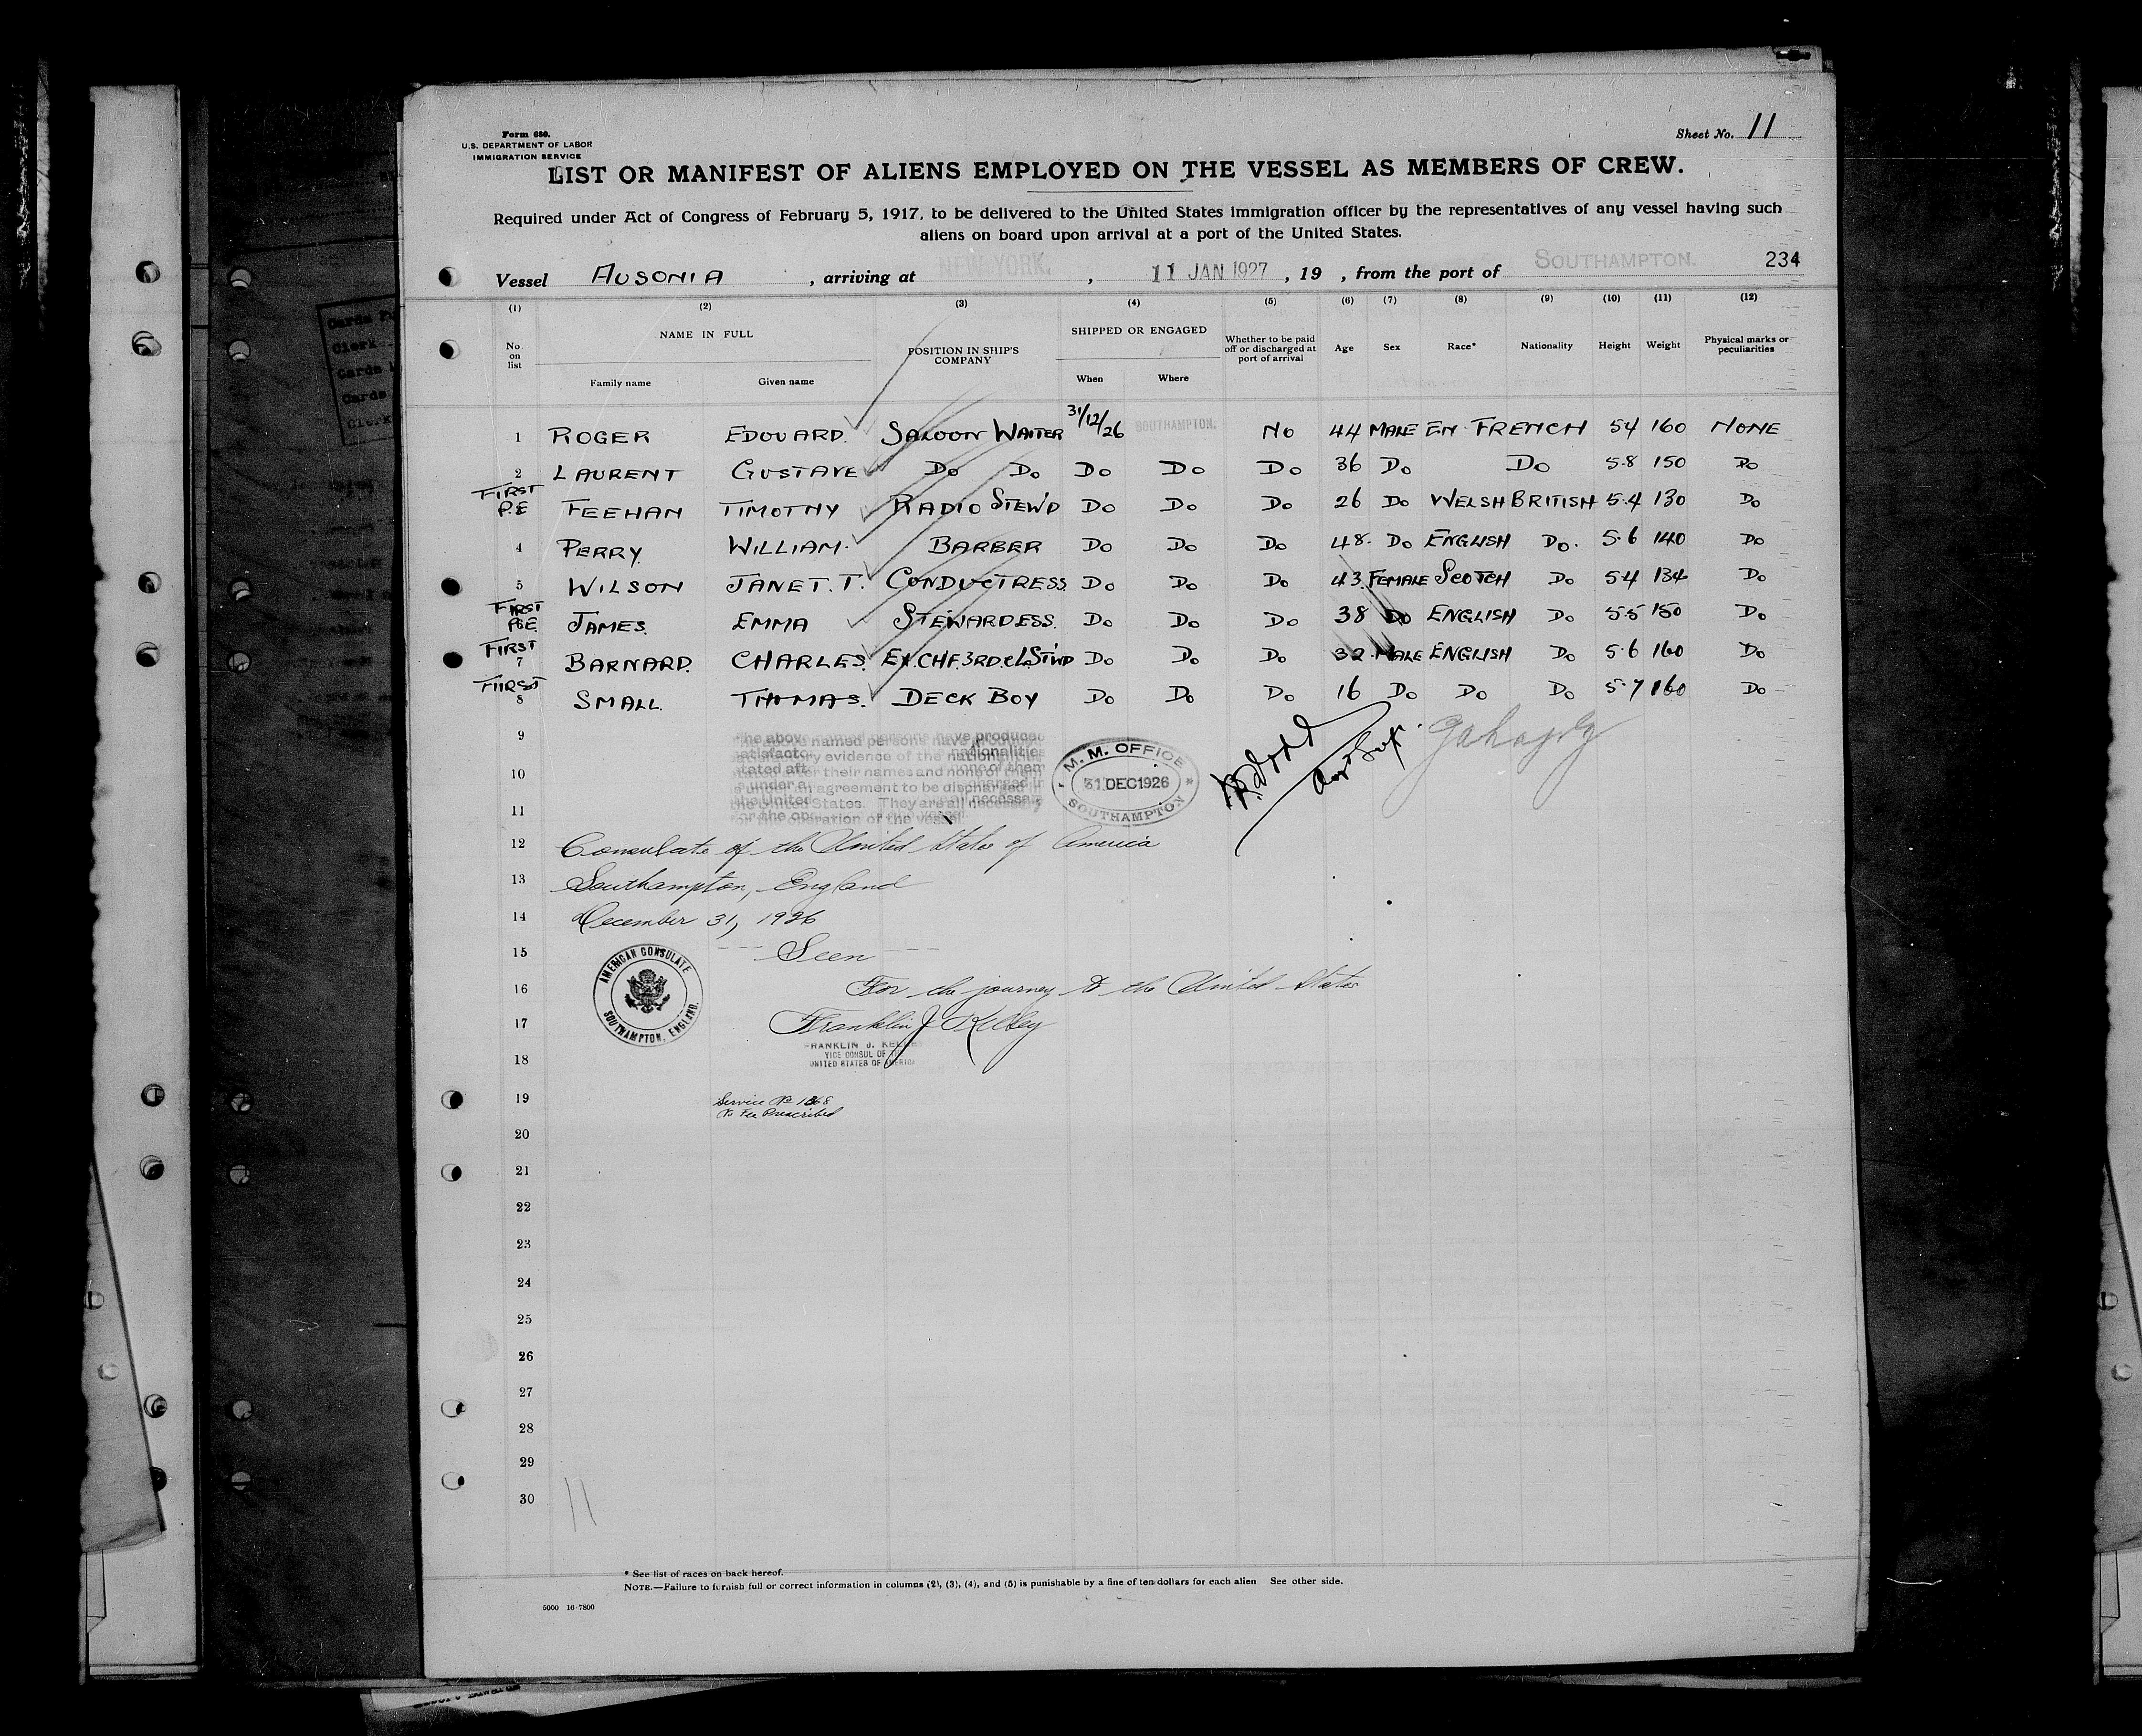 Form 680.
U.S. DEPARTMENT OF LABOR
IMMIGRATION SERVICE
Sheet No. 11
LIST OR MANIFEST OF ALIENS EMPLOYED ON THE VESSEL AS MEMBERS OF CREW.
Required under Act of Congress of February 5, 1917, to be delivered to the United States immigration officer by the representatives of any vessel having such
aliens on board upon arrival at a port of the United States.
Vessel AUSONIA , arriving at NEW YORK. , 11 JAN 1927 , 19 , from the port of SOUTHAMPTON. 234
(1) (2) (3) (4) (5) (6) (7) (8) (9) (10) (11) (12)
No on list NAME IN FULL Family name Given name POSITION IN SHIP'S COMPANY SHIPPED OR ENGAGED When Where Whether to be paid off or discharged at port of arrival Age Sex Race* Nationality Height Weight Physical marks or peculiarities
1 ROGER EDOUARD. SALOON WAITER 31/12/26 SOUTHAMPTON. NO 44 MALE EN FRENCH 54 160 NONE
2 LAURENT GUSTAVE DO DO DO DO DO 36 DO DO 5.8 150 DO
FIRST P.E FEEHAN TIMOTHY RADIO STEW'D DO DO DO 26 DO WELSH BRITISH 5.4 130 DO
4 PERRY. WILLIAM. BARBER DO DO DO 48. DO ENGLISH DO. 5.6 140 DO
5 WILSON JANET. T. CONDUCTRESS. DO DO DO 43. FEMALE SCOTCH DO 54 134 DO
FIRST P.E. JAMES. EMMA STEWARDESS. DO DO DO 38 DO ENGLISH DO 5.5 150 DO
FIRST 7 BARNARD. CHARLES. EX.CHF.3RD.CL.STWD DO DO DO 32. MALE ENGLISH DO 5.6 160 DO
FIRST 8 SMALL. THOMAS. DECK BOY DO DO DO 16 DO DO DO 5.7 160 DO
9
The above named persons have produced
satisfactory evidence of the nationalities
stated after their names and none of them
10
is under an agreement to be discharged in
the United States. They are all necessary
11
for the operation of the vessel.
M. M. OFFICE
31 DEC 1926
SOUTHAMPTON
12 Consulate of the United States of America
13 Southampton, England
14 December 31, 1926
15 --- Seen ---
16 For the journey to the United States
AMERICAN CONSULATE
SOUTHAMPTON, ENGLAND.
17 Franklin J Kelley
FRANKLIN J.
VICE CONSUL OF THE
18 UNITED STATES OF AMERICA
19 Service No 1868
No Fee Prescribed
20
21
22
23
24
25
26
27
28
29
30
11
* See list of races on back hereof.
NOTE.—Failure to furnish full or correct information in columns (2), (3), (4), and (5) is punishable by a fine of ten dollars for each alien See other side.
5000 16-7800